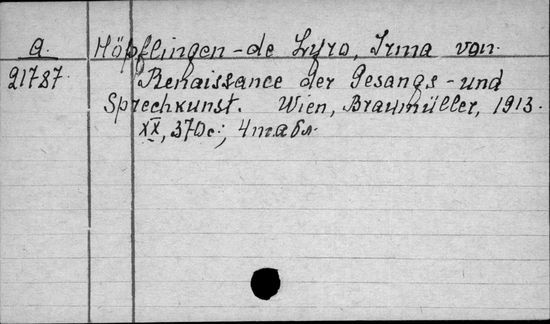 a. Höpflingen-de Lyro, Irma von.
21787. Renaissance der Gesangs-und
Sprechkunst. Wien, Braumüller, 1913.
XX, 370c.; 4табл.